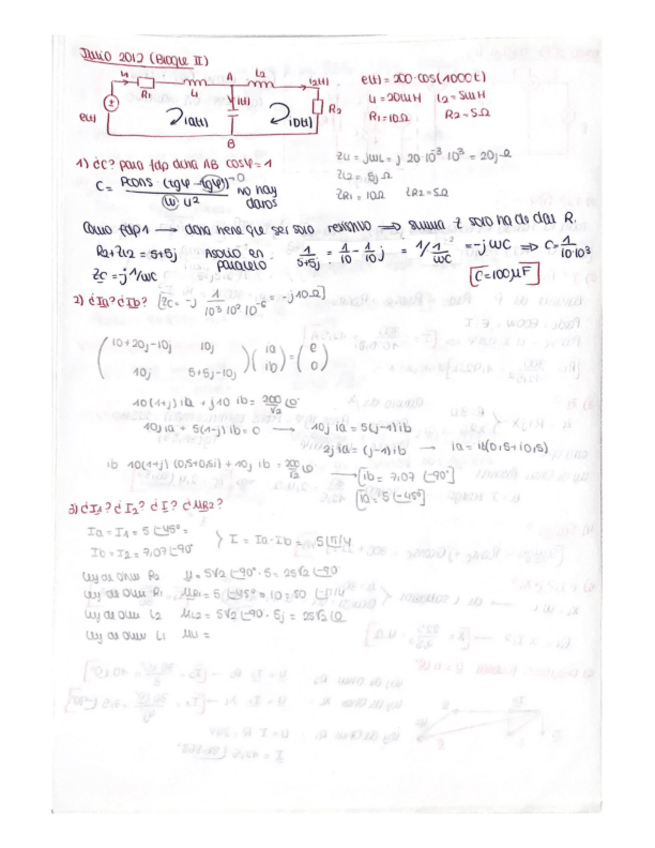 Junio 2012 (Bloque II)
i1 R1 L1 A L2 i2(t)
e(t) ia(t) i(t) ib(t) R2
B
e(t) = 200·cos(1000t)
L1 = 20mH L2 = 5mH
R1 = 10Ω R2 = 5Ω
1) ¿C? para fdp dona AB cosφ = 1
C = Pcons·(tgφ - tgφ')→0 / w u² no hay datos
ZL1 = jωL = j 20·10⁻³ 10³ = 20j Ω
ZL2 = 5j Ω
ZR1 = 10Ω ZR2 = 5Ω
Como fdp 1 → dona tiene que ser solo resistivo ⟹ suma Z solo ha de dar R.
R2 + ZL2 = 5+5j Asocio en paralelo 1/5+5j = 1/10 - 1/10 j = 1/ 1/ωC = -jωC ⟹ C = 1/10·10³
ZC = -j 1/ωC [C = 100μF]
2) ¿Ia? ¿Ib? [Zc = -j 1/10³ 10² 10⁻⁶ = -j10Ω]
(10+20j-10j 10j
10j 5+5j-10j) (ia ib) = (e 0)
10(1+j) ia + j10 ib = 200/√2 ∠0°
10j ia + 5(1-j) ib = 0 → 10j ia = 5(j-1) ib
2j ia = (j-1) ib → ia = ib(0,5+j0,5)
ib 10(1+j) (0,5+0,5i) + 10j ib = 200/√2 ∠0 → [ib = 7,07 ∠-90°]
[ia = 5 ∠-45°]
3) ¿I1? ¿I2? ¿I? ¿UR2?
Ia = I1 = 5 ∠-45° =
Ib = I2 = 7,07 ∠-90° } I = Ia-Ib = 5∠π/4
Ley de Ohm R2 U = 5√2 ∠-90°·5 = 25√2 ∠-90
Ley de Ohm R1 UR1 = 5 ∠-45° · 10 = 50 ∠-π/4
Ley de Ohm L2 UL2 = 5√2 ∠-90 · 5j = 25√2 ∠0
Ley de Ohm L1 UL1 =